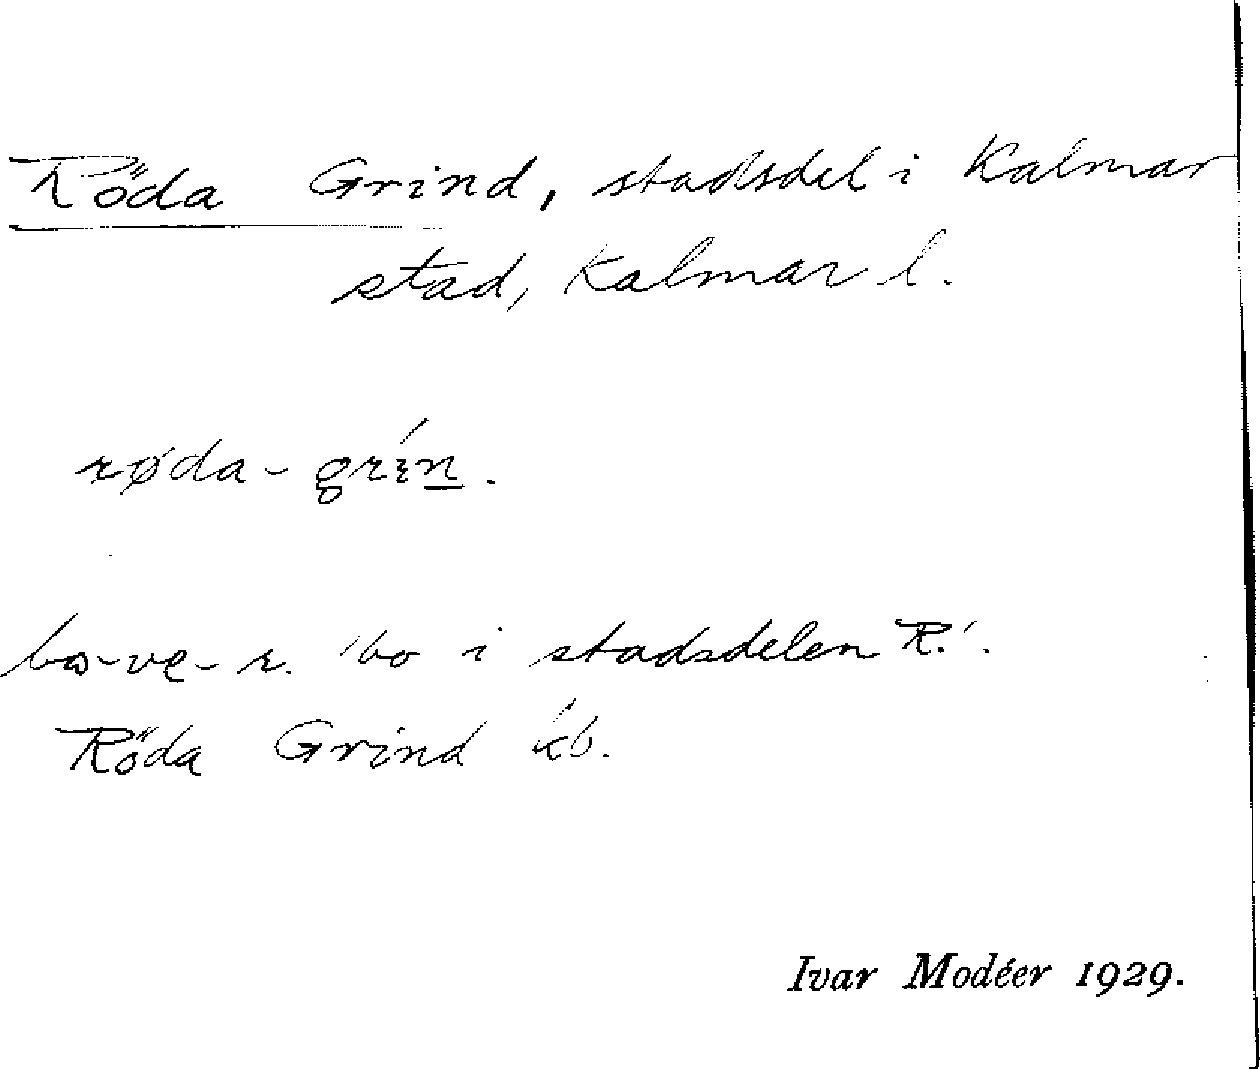 Röda Grind, stadsdel i Kalmar
stad, Kalmar l.
røda-grín.
bo-ve-r. 'bo i stadsdelen R.'.
Röda Grind kb.
Ivar Modéer 1929.